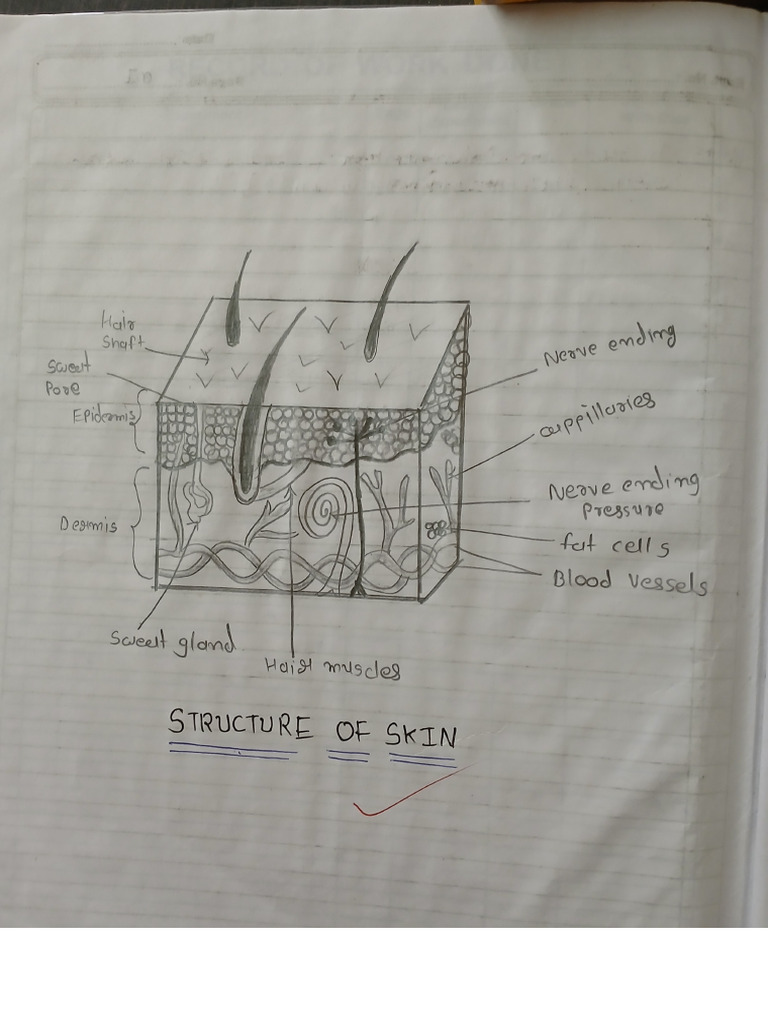 Hair
Shaft
Sweet
Pore
Epidermis
Dermis
Nerve ending
cappillaries
Nerve ending
Pressure
fat cells
Blood vessels
Sweet gland
Hair muscles
STRUCTURE OF SKIN